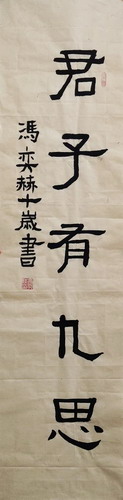 君子有九思
馮奕赫十歲書